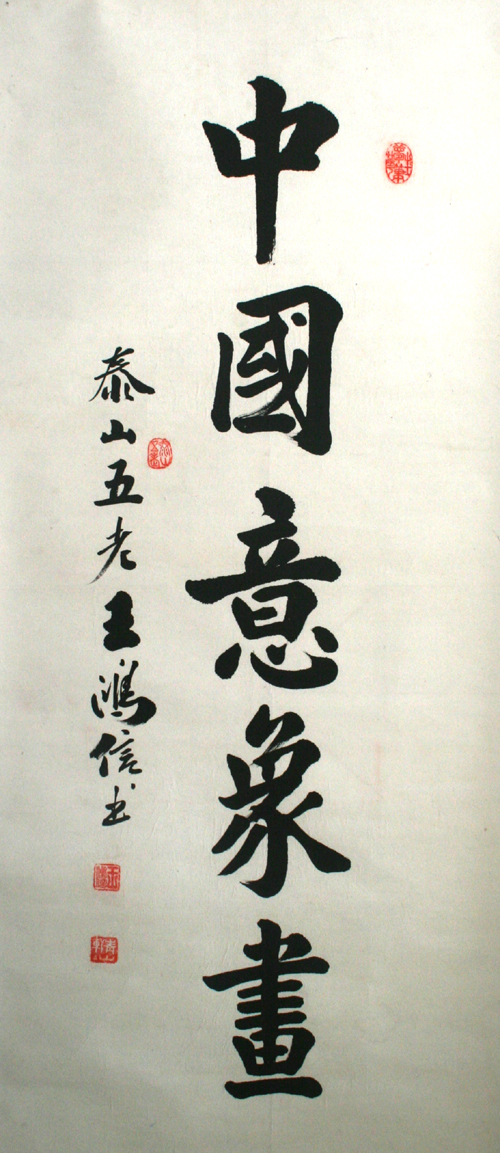 中國意象畫
泰山五老王鴻信书